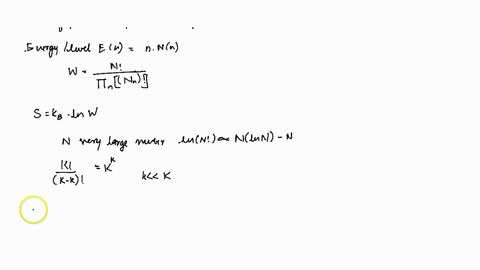 Energy level E(n) = n.N(n)
W = N! / ∏n[(Nn)!]
S = kB .ln W
N very large ln(N!) ≈ N(lnN) - N
K! / (K-k)! = K^k k<< K